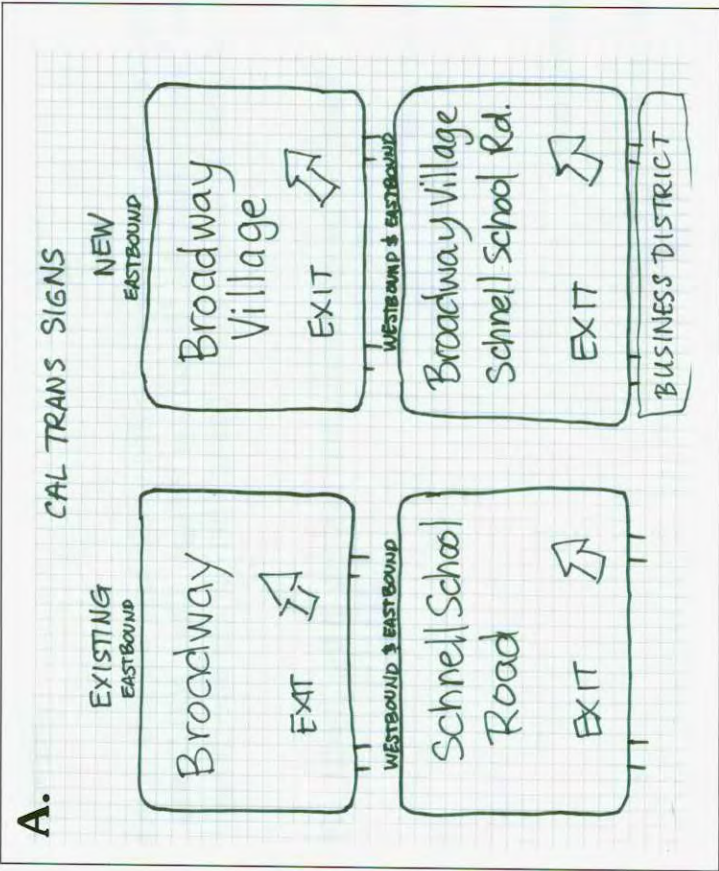 A.
CAL TRANS SIGNS
EXISTING
EASTBOUND
Broadway
EXIT
WESTBOUND & EASTBOUND
Schnell School
Road
EXIT
NEW
EASTBOUND
Broadway
Village
EXIT
WESTBOUND & EASTBOUND
Broadway Village
Schnell School Rd.
EXIT
BUSINESS DISTRICT